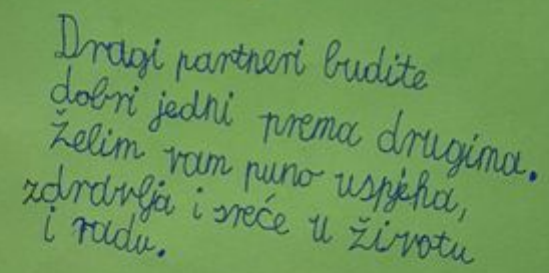 Dragi partneri budite
dobri jedni prema drugima.
Želim vam puno uspjeha,
zdravlja i sreće u životu
i radu.